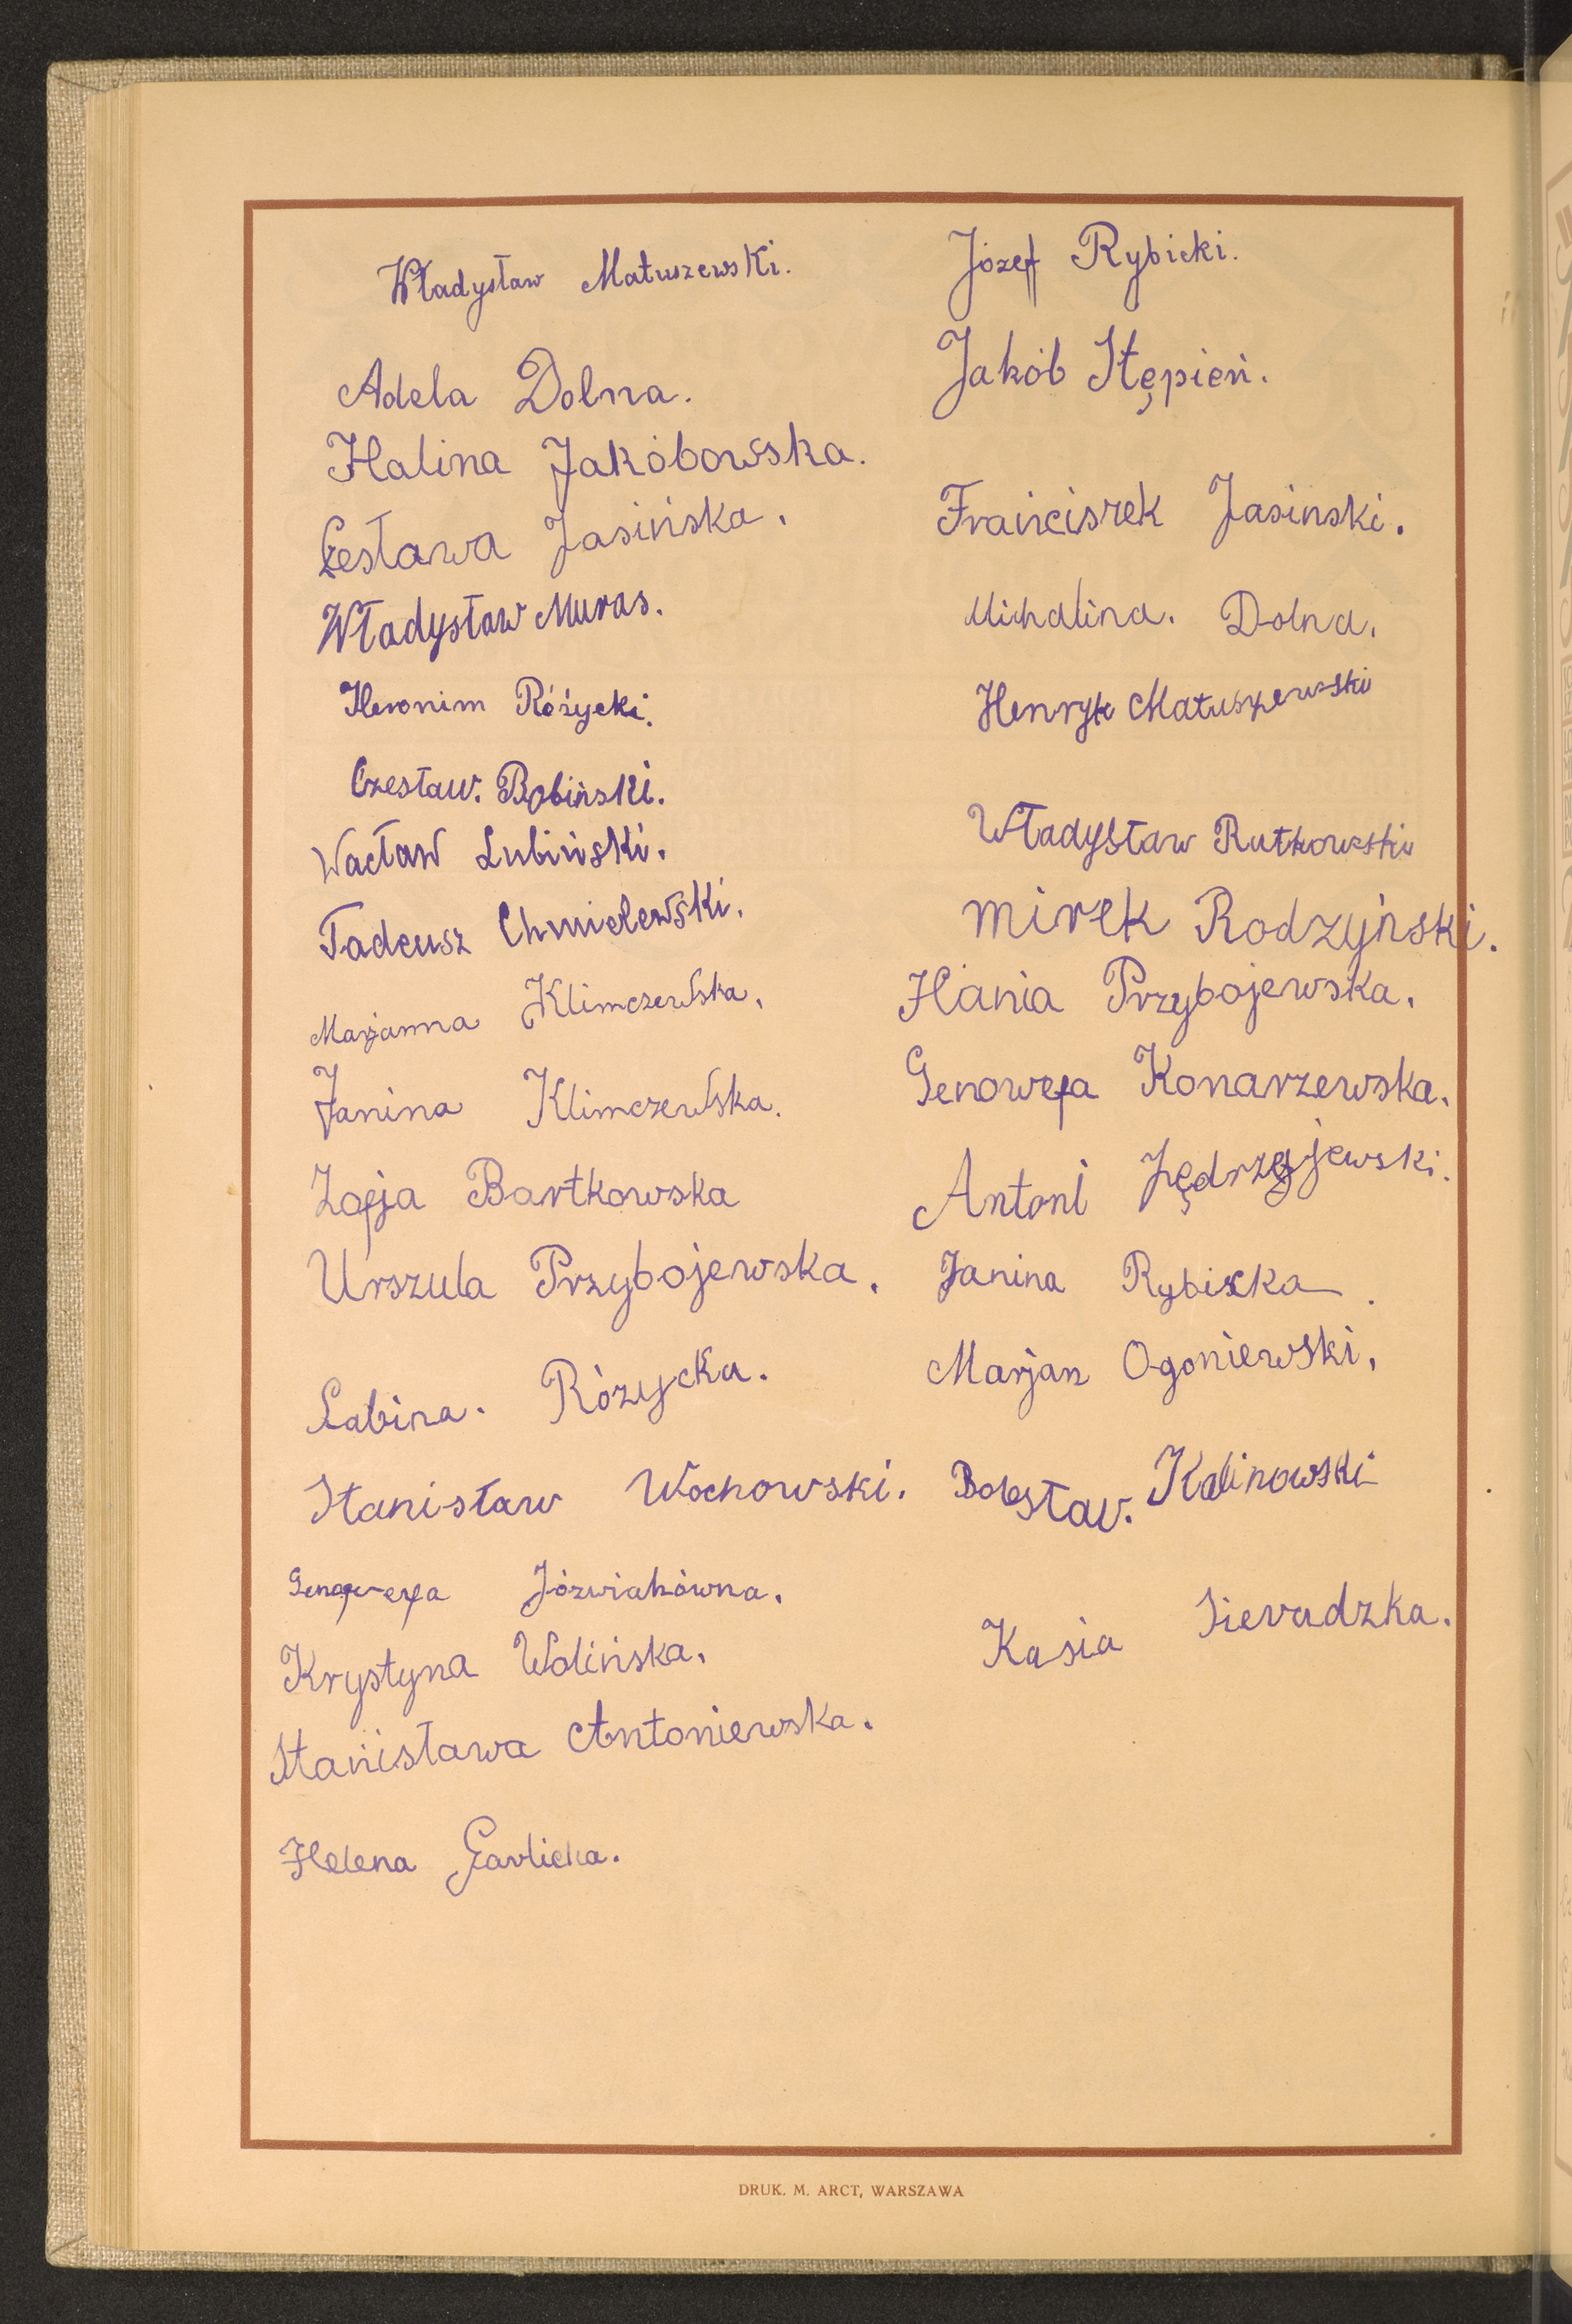 Władysław Matuszewski.
Adela Dolna.
Halina Jakóbowska.
Czesława Jasińska.
Władysław Muras.
Heronim Różycki.
Czesław. Bobiński.
Wacław Lubiński.
Tadeusz Chmielewski.
Marjanna Klimczewska.
Janina Klimczewska.
Zofja Bartkowska
Urszula Przybojewska.
Sabina. Różycka.
Stanisław Wochowski.
Genowefa Józwiakówna.
Krystyna Wolińska.
Stanisława Antoniewska.
Helena Garlicka.
Józef Rybicki.
Jakób Stępień.
Franciszek Jasinski.
Michalina. Dolna.
Henryk Matuszewski
Władysław Rutkowski
Mirek Rodzyński.
Hania Przybojewska.
Genowefa Konarzewska.
Antoni Jędrzejewski.
Janina Rybicka.
Marjan Ogoniewski.
Bolesław. Kalinowski
Kasia Sieradzka.
DRUK. M. ARCT, WARSZAWA